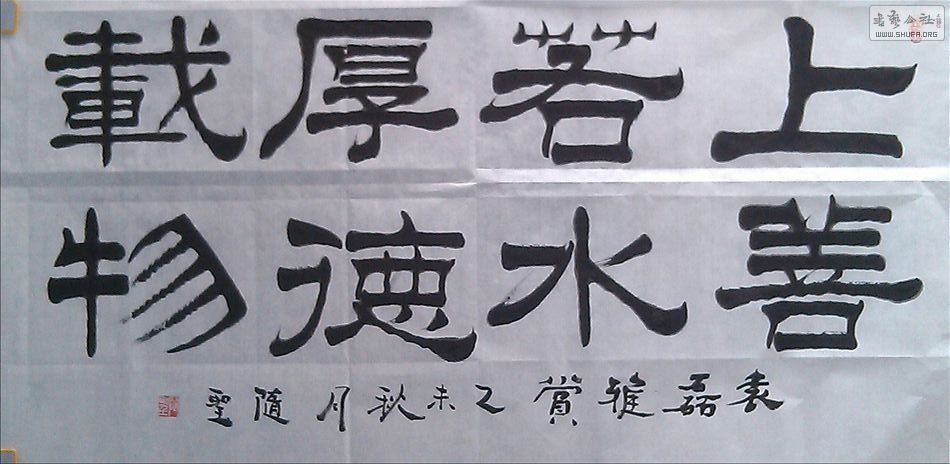 上善
若水
厚德
載物
袁磊雅賞乙未秋月隨聖
书艺公社
WWW.SHUFA.ORG